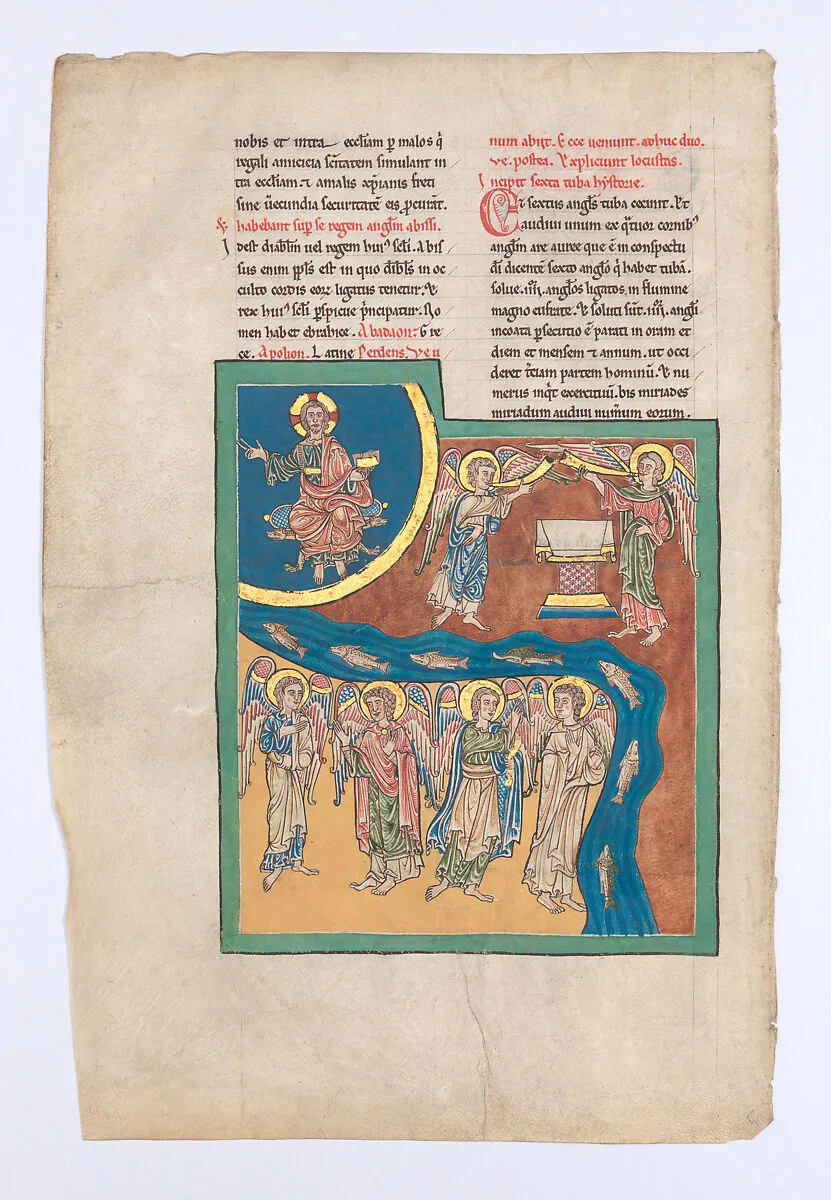 nobis et intra ecclam p malos q
regali amicicia scitatem simulant in
tra eccliam. ⁊ amalis xpianis freti
sine uecundia securitate eis pcurat.
& habebant sup se regem anglm abissi.
Idest diablm uel regem hui' scli. Abis
sus enim ppls est in quo diabls in oc
culto cordis eorz ligatus tenetur. &
rex hui' scli pspicue pncipatur. No
men habet ebrahice. Abadaon. Gre
ce. Apolion. Latine Perdens. Ve u
num abijt. Ecce ueniunt. adhuc duo.
ve. postea. Expliciunt locustas.
Incipit sexta tuba hystorie.
Et sextus angls tuba cecinit. Et
audiui unum ex qtuor cornib'
anglm are auree que e in conspectu
di dicente sexto anglo q habet tuba.
solue. iiii. anglos ligatos in flumine
magno eufrate. & soluti sut. iiii. angli
incoata psecutio e parati in oram et
diem et mensem ⁊ annum. ut occi
deret tciam partem hominu. & nu
merus inqt exercituu. bis miriades
miriadum audiui numum eorum.